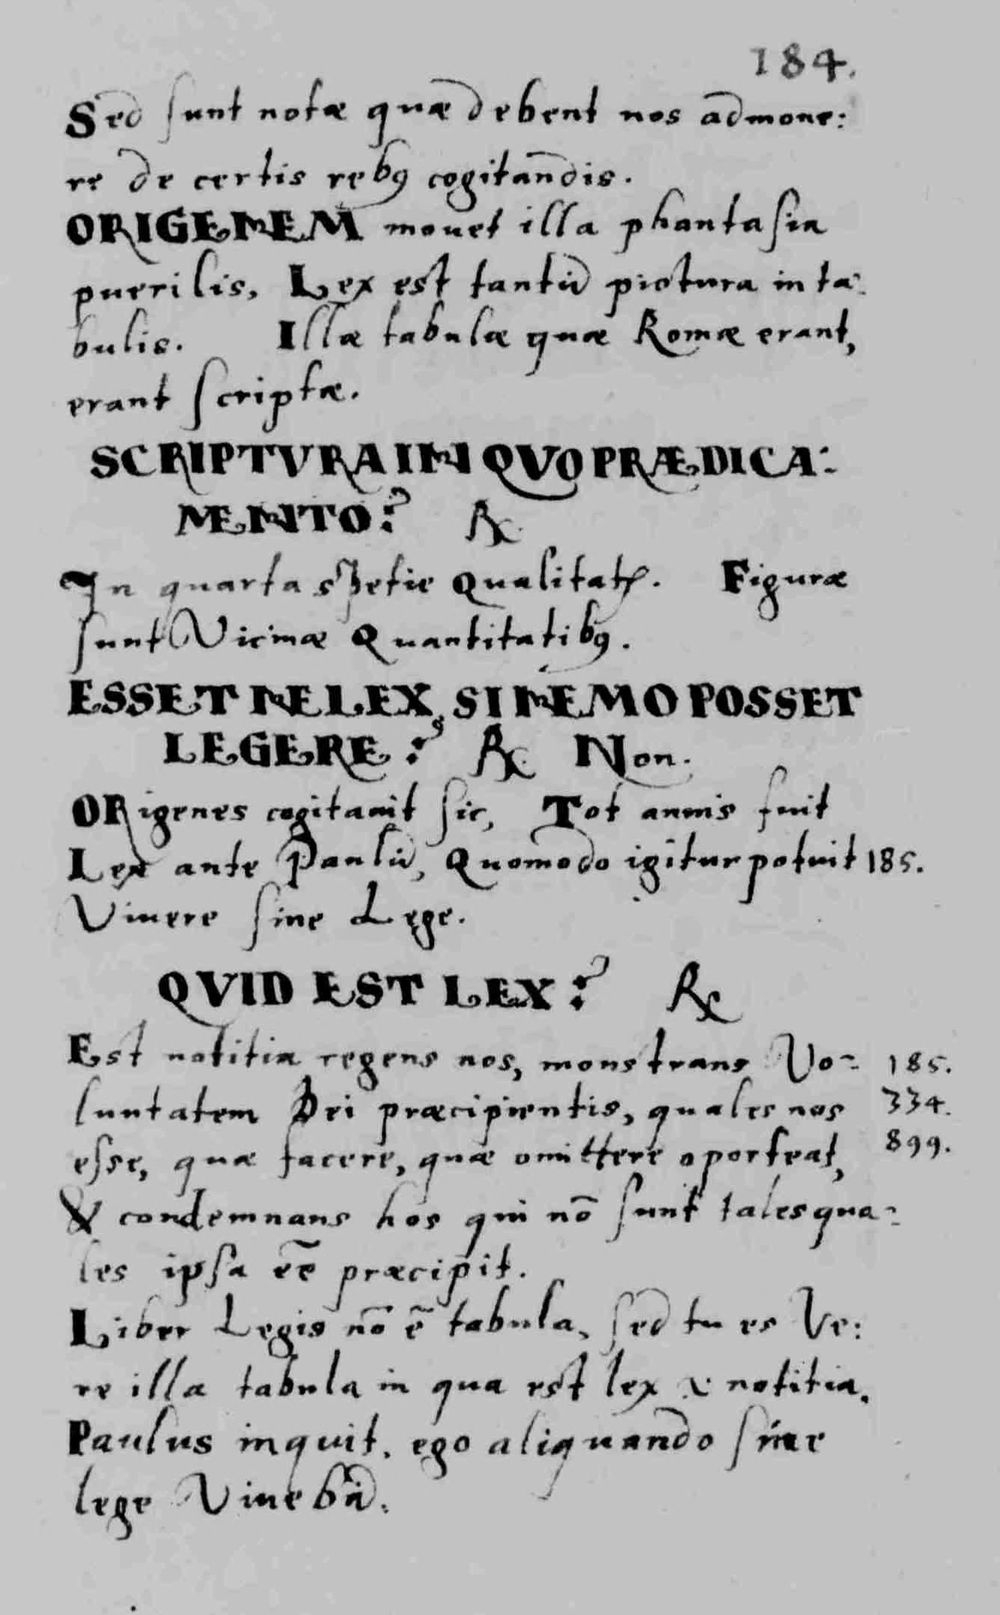 184.
Sed sunt notæ quæ debent nos admone:
re de certis rebꝰ cogitandis.
ORIGENEM mouet illa phantasia
puerilis, Lex est tantũ pictura in ta:
bulis. Illæ tabulæ quæ Romæ erant,
erant scriptæ.
SCRIPTVRA IN QVO PRÆDICA:
MENTO? ℞
In quarta spetie Qualitatꝭ. Figuræ
sunt Vicinæ Quantitatibꝰ.
ESSET NE LEX, SI NEMO POSSET
LEGERE? ℞ Non.
ORigenes cogitauit sic, Tot annis fuit
Lex ante Paulũ, Quomodo igitur potuit 185.
Viuere sine Lege.
QVID EST LEX? ℞
Est notitia regens nos, monstrans Vo: 185.
luntatem Dei præcipientis, quales nos 334.
esse, quæ facere, quæ omittere oporteat, 899.
& condemnans hos qui nō sunt tales qua:
les ipsa eē præcipit.
Liber Legis nō ē tabula, sed tu es Ve:
re illa tabula in qua est lex & notitia.
Paulus inquit, ego aliquando sine
lege Viuebã.